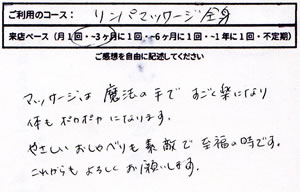 ご利用のコース：リンパマッサージ全身
来店ペース（月１回・~３ヶ月に１回・~６ヶ月に１回・~１年に１回・不定期）
ご感想を自由に記述してください
マッサージは魔法の手ですごく楽になり
体もポカポカになります。
やさしいおしゃべりも素敵で至福の時です。
これからもよろしくお願いします。